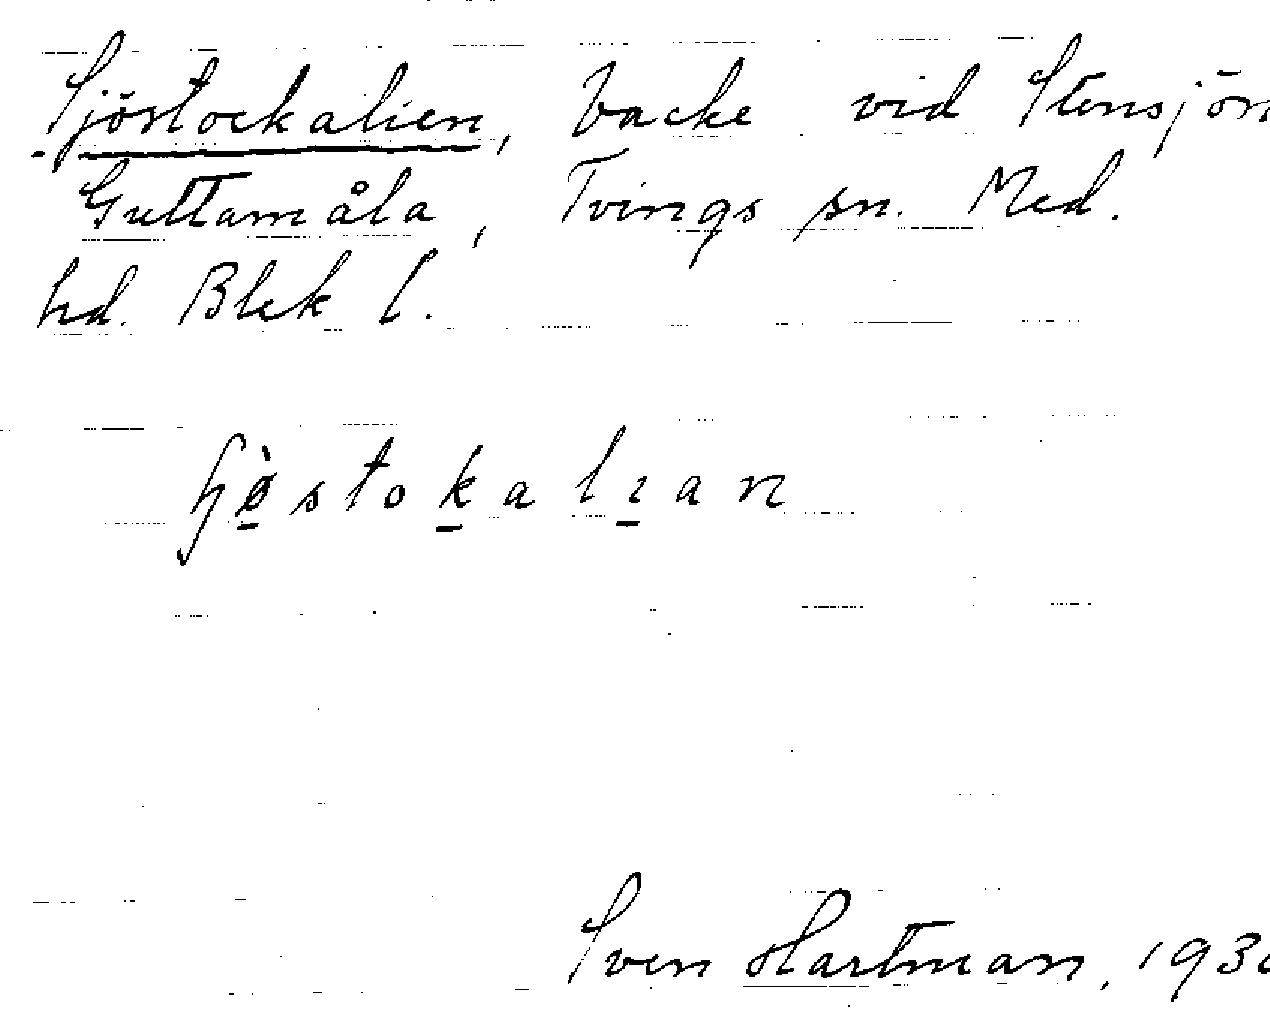 Sjöstockalien, backe vid Stensjön
Guttamåla, Tvings sn. Med.
hd. Blek l.
Sven Hartman, 193